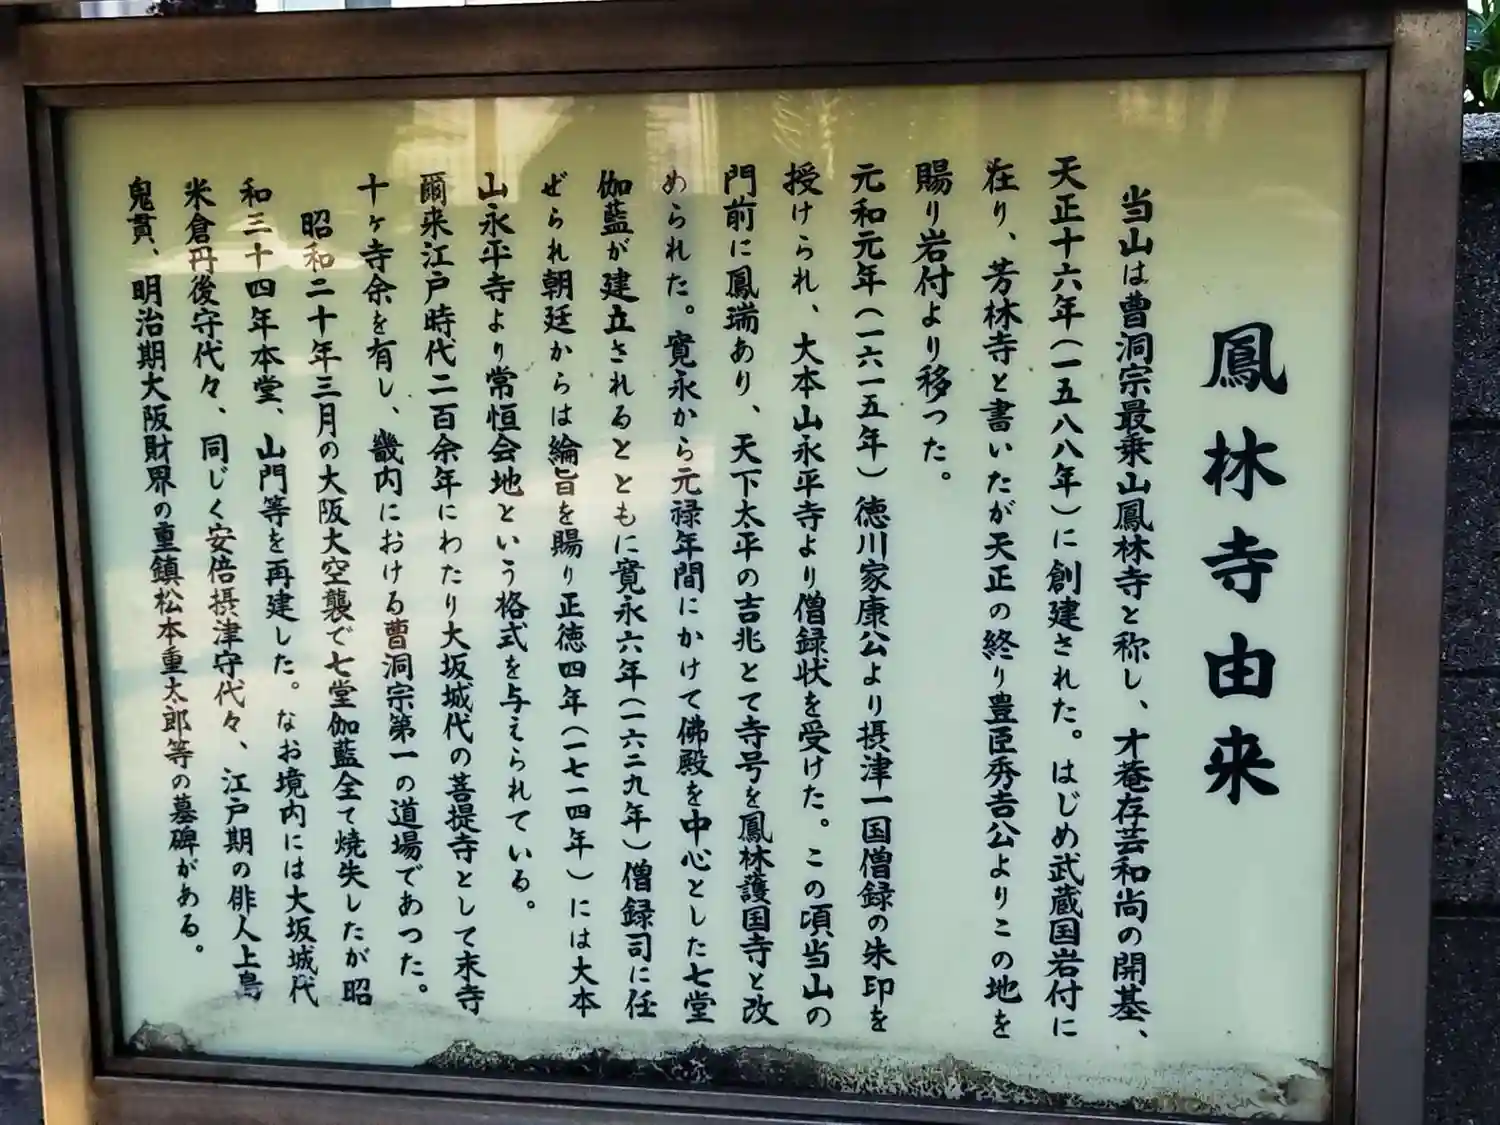 鳳林寺由来
当山は曹洞宗最乗山鳳林寺と称し、才菴存芸和尚の開基、
天正十六年(一五八八年)に創建された。はじめ武蔵国岩付に
在り、芳林寺と書いたが天正の終り豊臣秀吉公よりこの地を
賜り岩付より移つた。
元和元年(一六一五年)徳川家康公より摂津一国僧録の朱印を
授けられ、大本山永平寺より僧録状を受けた。この頃当山の
門前に鳳瑞あり、天下太平の吉兆とて寺号を鳳林護国寺と改
められた。寛永から元禄年間にかけて佛殿を中心とした七堂
伽藍が建立されるとともに寛永六年(一六二九年)僧録司に任
ぜられ朝廷からは綸旨を賜り正徳四年(一七一四年)には大本
山永平寺より常恒会地という格式を与えられている。
爾来江戸時代二百余年にわたり大坂城代の菩提寺として末寺
十ヶ寺余を有し、畿内における曹洞宗第一の道場であつた。
昭和二十年三月の大阪大空襲で七堂伽藍全て焼失したが昭
和三十四年本堂、山門等を再建した。なお境内には大坂城代
米倉丹後守代々、同じく安倍摂津守代々、江戸期の俳人上島
鬼貫、明治期大阪財界の重鎮松本重太郎等の墓碑がある。